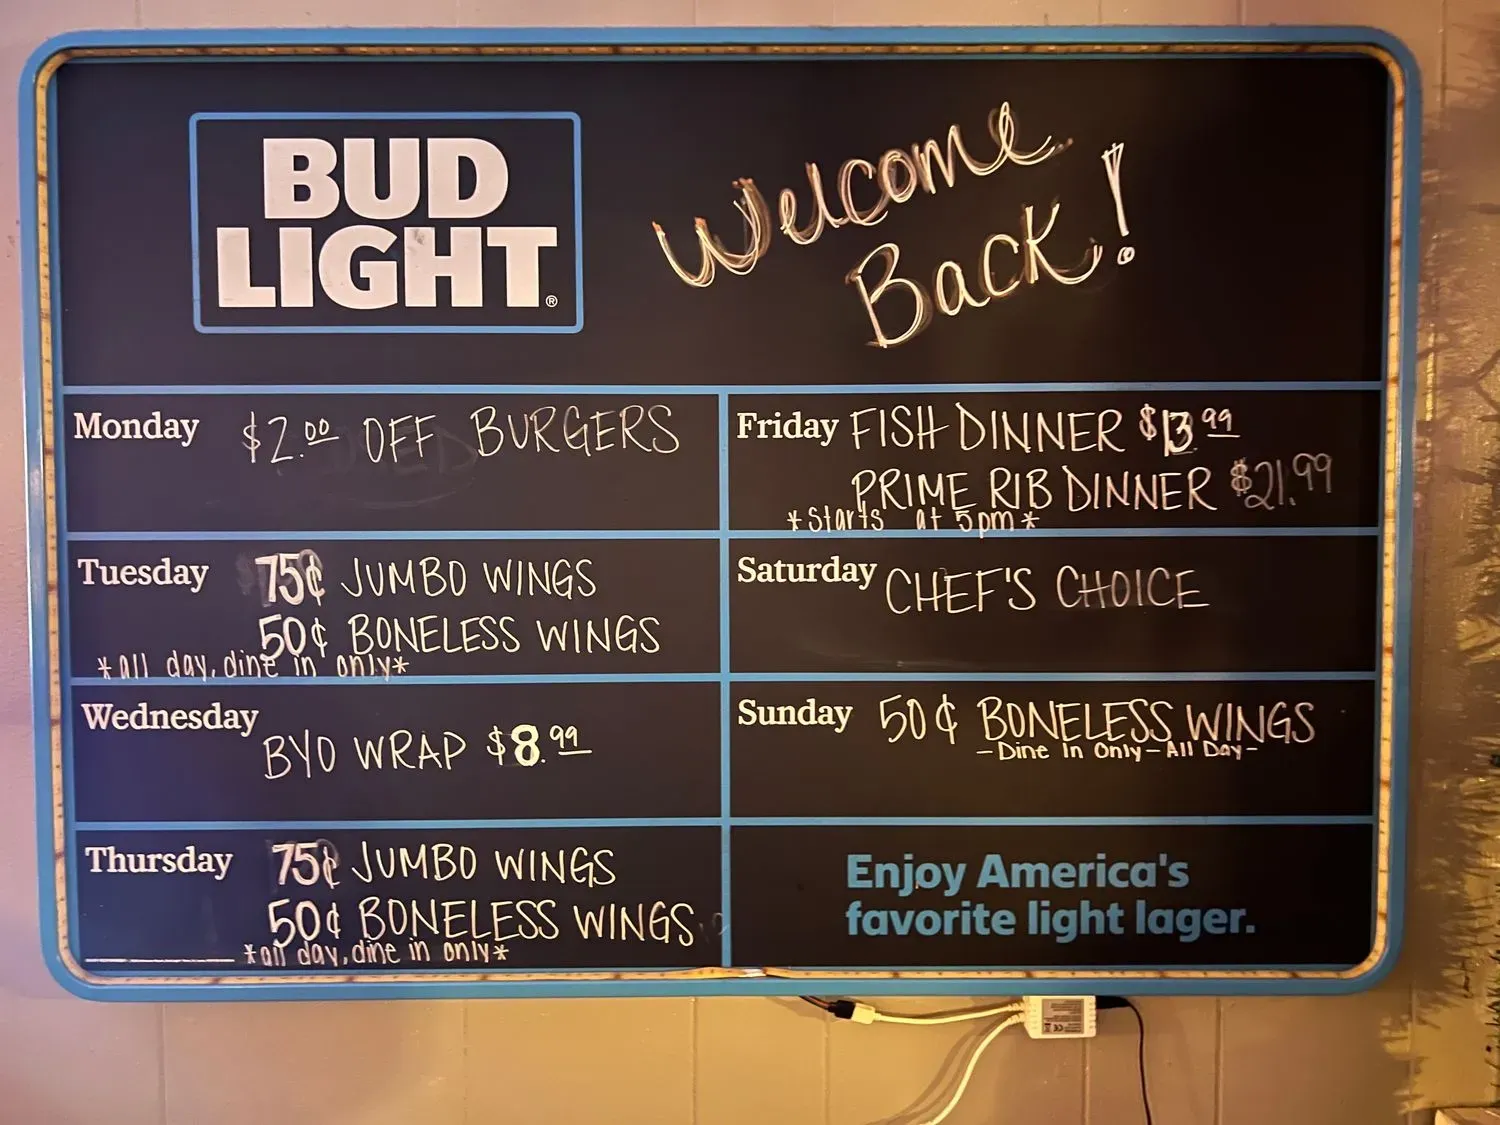 BUD
LIGHT®
Welcome
Back!
Monday $2.00 OFF BURGERS
Tuesday 75¢ JUMBO WINGS
50¢ BONELESS WINGS
*all day, dine in only*
Wednesday
BYO WRAP $8.99
Thursday 75¢ JUMBO WINGS
50¢ BONELESS WINGS
*all day, dine in only*
Friday FISH DINNER $13.99
PRIME RIB DINNER $21.99
*starts at 5pm*
Saturday CHEF'S CHOICE
Sunday 50¢ BONELESS WINGS
-Dine In Only-All Day-
Enjoy America's
favorite light lager.